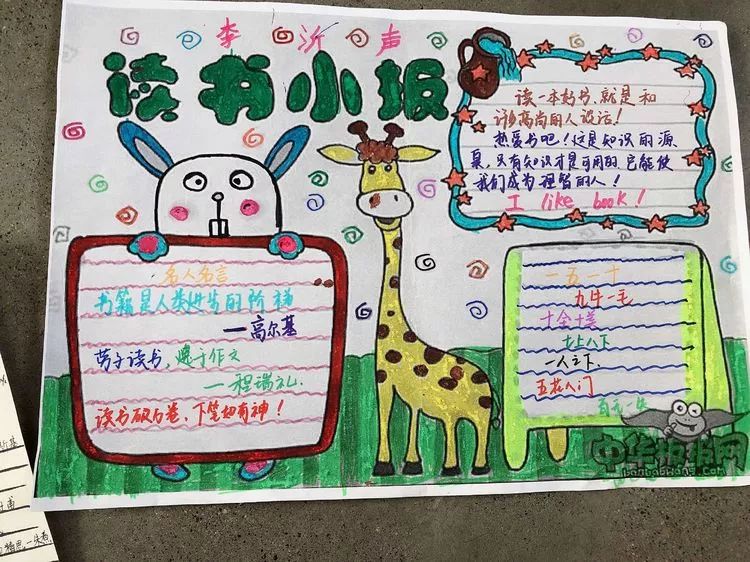 李沂声
读书小报
读一本好书,就是和
许多高尚的人谈话!
热爱书吧!这是知识的源
泉,只有知识才是可用的,它能使
我们成为理智的人!
I like book!
名人名言
书籍是人类进步的阶梯
—高尔基
劳于读书,逸于作文
—程端礼.
读书破万卷,下笔如有神!
一五一十
九牛一毛
十全十美
七上八下
一人之下.
五花八门
百无一失
中华板报网